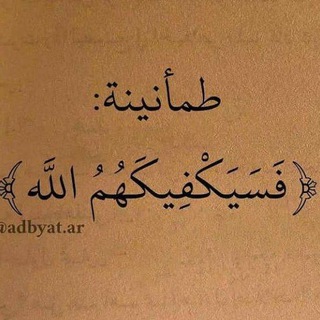 طمأنينة:
﴿فَسَيَكْفِيكَهُمُ اللَّه﴾
@adbyat.ar